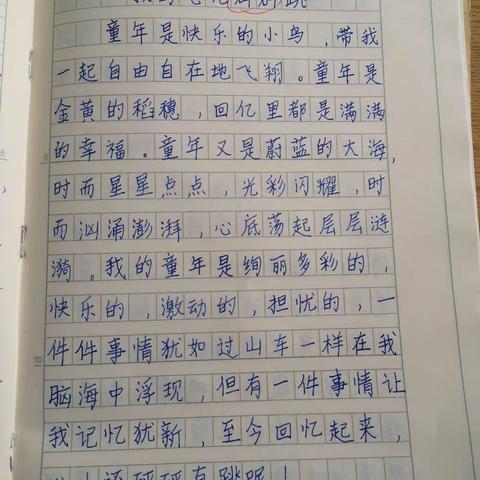 童年是快乐的小鸟，带我
一起自由自在地飞翔。童年是
金黄的稻穗，回亿里都是满满
的幸福。童年又是蔚蓝的大海，
时而星星点点，光彩闪耀，时
而汹涌澎湃，心底荡起层层涟
漪。我的童年是绚丽多彩的，
快乐的，激动的，担忧的，一
件件事情犹如过山车一样在我
脑海中浮现，但有一件事情让
我记忆犹新，至今回忆起来，
还砰砰直跳呢！